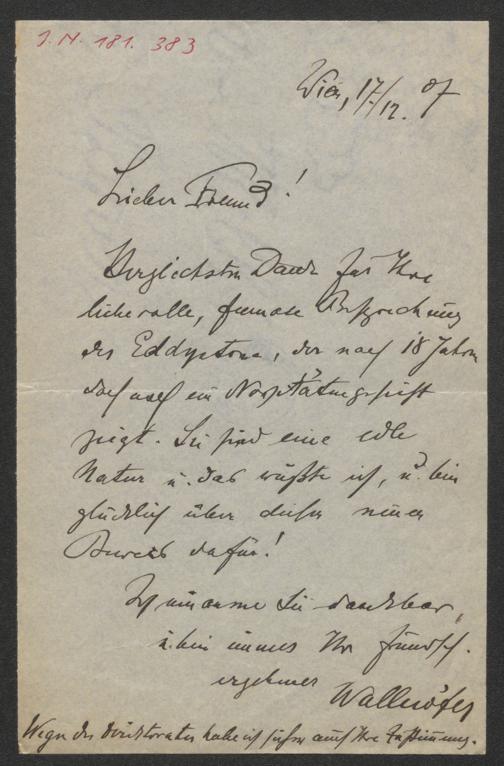 I.N. 181.383
Wien, 17/12. 07
Lieber Freund!
Herzlichsten Dank für Ihre
liebevolle, famose Besprechung
des Eddystone, der nach 18 Jahren
doch noch ein Novitätengesicht
zeigt. Sie sind eine edle
Natur u. das wußte ich, u. bin
glücklich über diesen neuen
Beweis dafür!
Ich umarme Sie dankbar,
u. bin immer Ihr freundsch.
ergebener Wallnöfer
Wegen des Direktorates habe ich sicher auf Ihre Zustimmung.